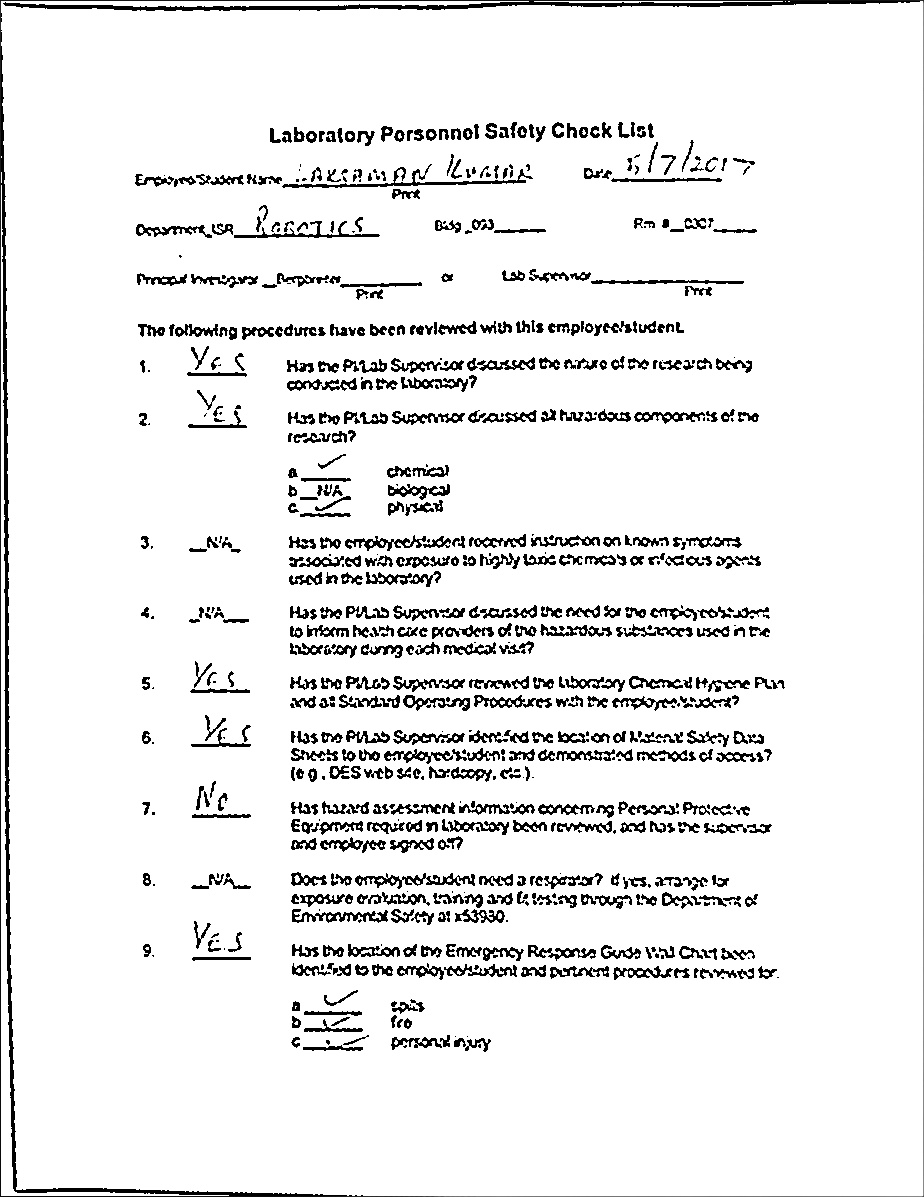 Laboratory Personnel Safety Check List
Employee/Student Name LAKSAMAN KUMAR Date 5/7/2017
Print
Department_ISR ROBOTICS Bldg _093______ Rm #__0307_____
Principal Investigator __Bergbreiter_________ or Lab Supervisor____________________
Print Print
The following procedures have been reviewed with this employee/student.
1. YES Has the PI/Lab Supervisor discussed the nature of the research being
conducted in the laboratory?
2. YES Has the PI/Lab Supervisor discussed all hazardous components of the
research?
a ✓ chemical
b __N/A_ biological
c. ✓ physical
3. __N/A_ Has the employee/student received instruction on known symptoms
associated with exposure to highly toxic chemicals or infectious agents
used in the laboratory?
4. _N/A___ Has the PI/Lab Supervisor discussed the need for the employee/student
to inform health care providers of the hazardous substances used in the
laboratory during each medical visit?
5. YES Has the PI/Lab Supervisor reviewed the Laboratory Chemical Hygiene Plan
and all Standard Operating Procedures with the employee/student?
6. YES Has the PI/Lab Supervisor identified the location of Material Safety Data
Sheets to the employee/student and demonstrated methods of access?
(e.g., DES web site, hardcopy, etc.).
7. No Has hazard assessment information concerning Personal Protective
Equipment required in laboratory been reviewed, and has the supervisor
and employee signed off?
8. __N/A__ Does the employee/student need a respirator? If yes, arrange for
exposure evaluation, training and fit testing through the Department of
Environmental Safety at x53930.
9. YES Has the location of the Emergency Response Guide Wall Chart been
identified to the employee/student and pertinent procedures reviewed for:
a ✓ spills
b ✓ fire
c ✓ personal injury